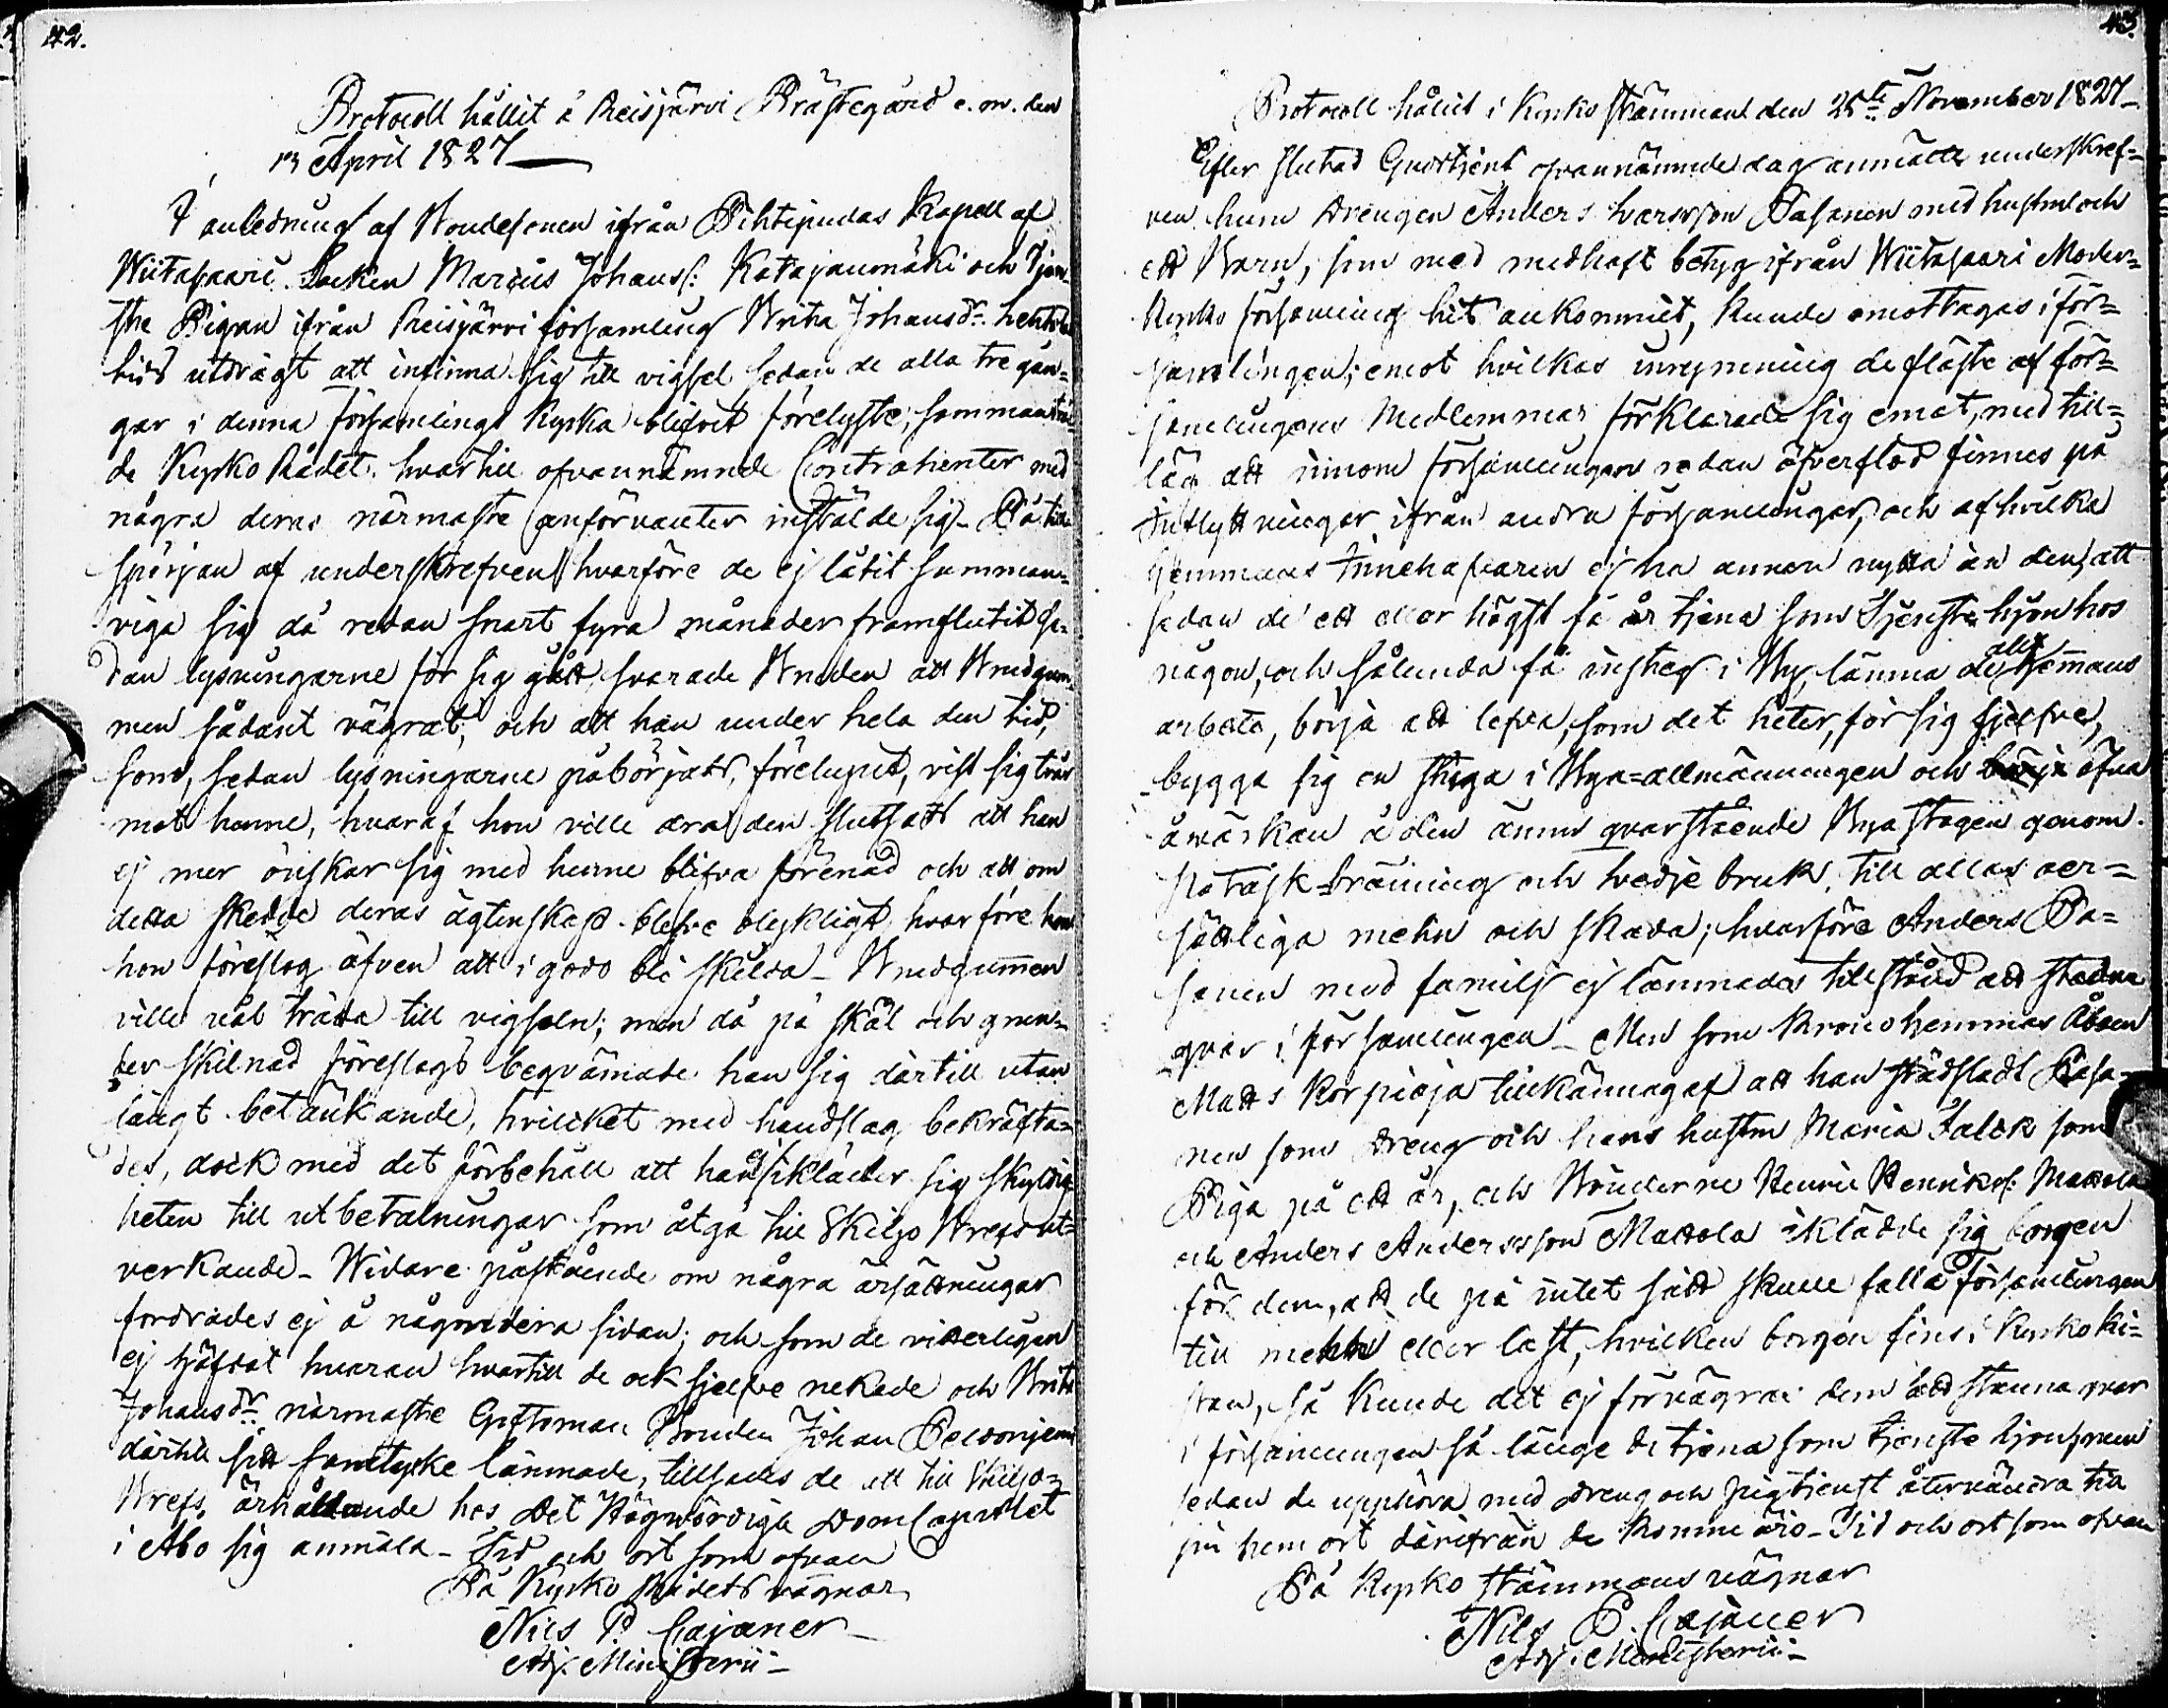 42.
Protocoll hållit å Reisjärvi Prästegård e. m. den
13 April 1827
I anledning af Bondesonen ifrån Pihtipudas Kapell af
Wiitasaari Socken Marcus Johanss: Katajanmäki och Tjen-
ste Pigan ifrån Reisjärvi församling Brita Johansdr.
tid utdragt att infinna sig till vigsel sedan de alla tre gån-
gar i denna församlings Kyrka blifvit förelyste; samman
de Kyrko Rådet. hvartill ofvannämnde Contrahenter med
några deras närmaste anförvanter instälde sig – På till-
spörjan af underskrefven hvarföre de ej låtit samman-
viga sig då redan snart fyra månader framflutit se-
dan lysningarne för sig gått, svarade Bruden att Brudgum-
men sådant vägrat; och att han under hela den tid,
som, sedan lysningarne påbörjats, förelupit, vist sig tvär
mot henne, hvaraf hon ville dra den slutsats att han
ej mer önskar sig med henne blifva förenad och att om
detta skedde deras ägtenskap blefve olyckligt, hvarföre
hon föreslog äfven att i godo bli skilda – Brudgummen
ville väl träda till vigseln; men då på skäl och grun-
der skilnad föreslogs beqvämade han sig därtill utan
långt betänkande, hvilcket med handslag bekräfta-
des, dock med det förbehåll att han ikläder sig skyldig-
heten till utbetalningar som åtgå till Skiljo Brefs ut-
verkande – Widare påstående om några ärsättningar
fordrades ej å någondera sidan; och som de vitterligen
ej häfdat hvaran hvartill de ock sjelfve nekade och Brita
Johansdr. närmaste Giftoman Bonden Johan
därtill sitt samtycke lämnade, tillsades de att till Skiljo-
Brefs ärhållande hos Det Högwördiga DomCapitlet
i Åbo sig anmäla – Tid och ort som ofvan
På Kyrko Rådets vägnar
Nils P. Cajaner
Adj. Ministerii –
43.
Protocoll hållit i Kyrko stämman den 25te November 1827 –
Efter slutad Gudstjenst ofvannämnde dag anmälte underskref-
ven hurn Drengen Anders Ivarsson Pasanen med hustru och
ett Barn, som med medhaft betyg ifrån Wiitasaari Moder-
Kyrko församling hit ankommit, kunde emottagas i för-
samlingen; emot hvilkas inrymning de fläste af för-
samlingens Medlemmar förklarade sig emot, med till-
läg att innom församlingen redan öfverflöd finnes på
Inflyttningar ifrån andra församlingar, och af hvilka
Hemmans Innehafvaren ej ha annan nytta än den, att
sedan de ett eller högst få år tjena som Tjenste hjon hos
någon, och sålunda få insteg i By, lämna de allt Hemmans
arbete, börja att lefva, som det heter, för sig sjelfve,
bygga sig en stuga i Bya-allmänningen och öfva
åvärkan å den ännu qvarstående Byaskogen genom
Potask-bränning och svedje bruk, till allas oer-
sättliga mehn och skada; hvarföre Anders Pa-
sanen med familj ej lämnades tillstånd att stadna
qvar i församlingen – Men som Kronohemmans Åboen
Matts Korpioja tillkännagaf att han städsladt Pasa-
nen som Dreng och hans hustru Maria Falck som
Piga på ett år, och Bönderne Henric Henrikss: Mattola
och Anders Andersson Mattola iklädde sig borgen
för dem, att de på intet sätt skulle falla församlingen
till mehn eller last, hvilken borgen fins i Kyrko ki-
stan, så kunde det ej förvägras dem att stanna qvar
i församlingen så länge de tjena som tjenste hjon men
sedan de upphöra med dreng och pigtjenst återvända till
sin hem ort därifrån de komne äro – Tid och ort som ofvan
På Kyrko stämmans vägnar
Nils P. Cajaner
Adj. Ministerii –